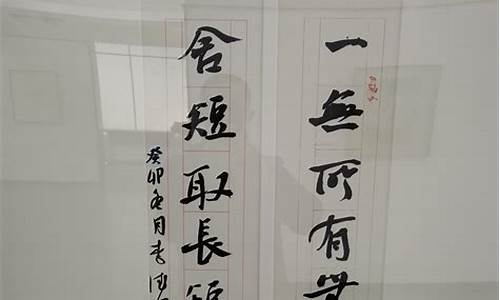 一無所有
舍短取長
癸卯冬月李